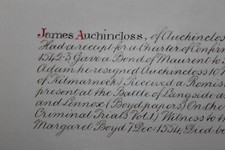 James Auchincloss, of Auchincloss
Had a recept for a Charter of Confirm
1542-3 Gave a Bond of Maurent to
Adam he resigned Auchincloss 10
of Kilmarnock) Received a Remiss
present at the Battle of Langside
and Lennox (Boyd papers) On the
Criminal Trials Vol. 1) Witness to th
Margaret Boyd 7 Dec. 1534, Died be